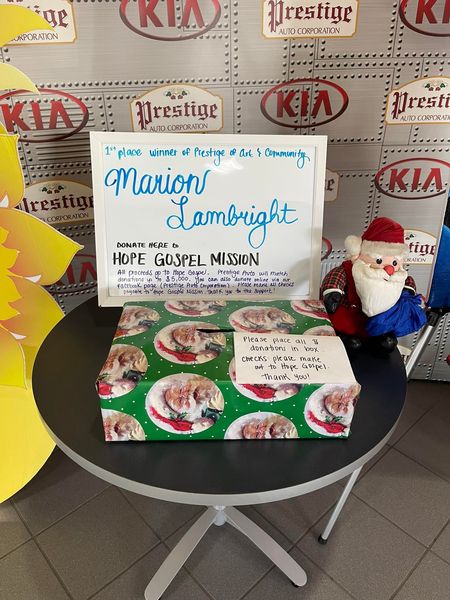 Prestige
AUTO CORPORATION
KIA
Prestige
AUTO CORPORATION
KIA
KIA
Prestige
AUTO CORPORATION
KIA
Prestige
AUTO CORPORATION
Prestige
CORPORATION
KIA
Prestige
CORPORATION
1st place winner of Prestige of Art & Community
Marion
Lambright
DONATE HERE to
HOPE GOSPEL MISSION
All proceeds go to Hope Gospel. Prestige Auto will match
donations up to $5,000. You can also donate online via our
Facebook page (Prestige Auto Corporation). Please make all checks
payable to Hope Gospel Mission. Thank you for the support!
Please place all
donations in box
checks please make
out to Hope Gospel.
Thank you!